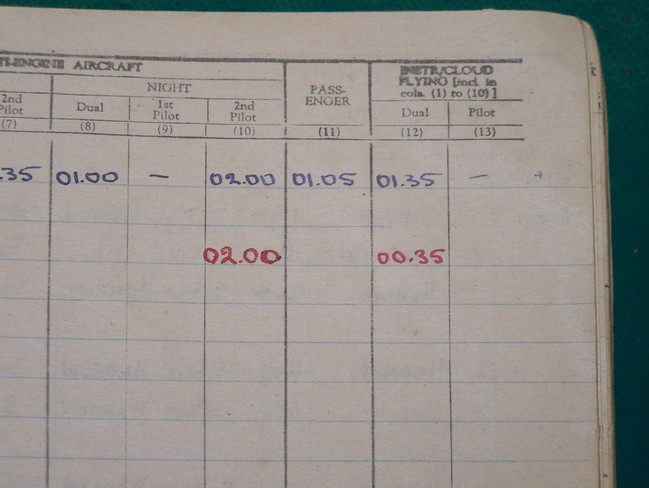 TI-ENGINE AIRCRAFT
INSTR/CLOUD
FLYING [incl. in
cols. (1) to (10)]
NIGHT
PASS-
ENGER
2nd
Pilot
Dual
1st
Pilot
2nd
Pilot
Dual
Pilot
(7) (8) (9) (10) (11) (12) (13)
.35 01.00 — 02.00 01.05 01.35 —
02.00 00.35